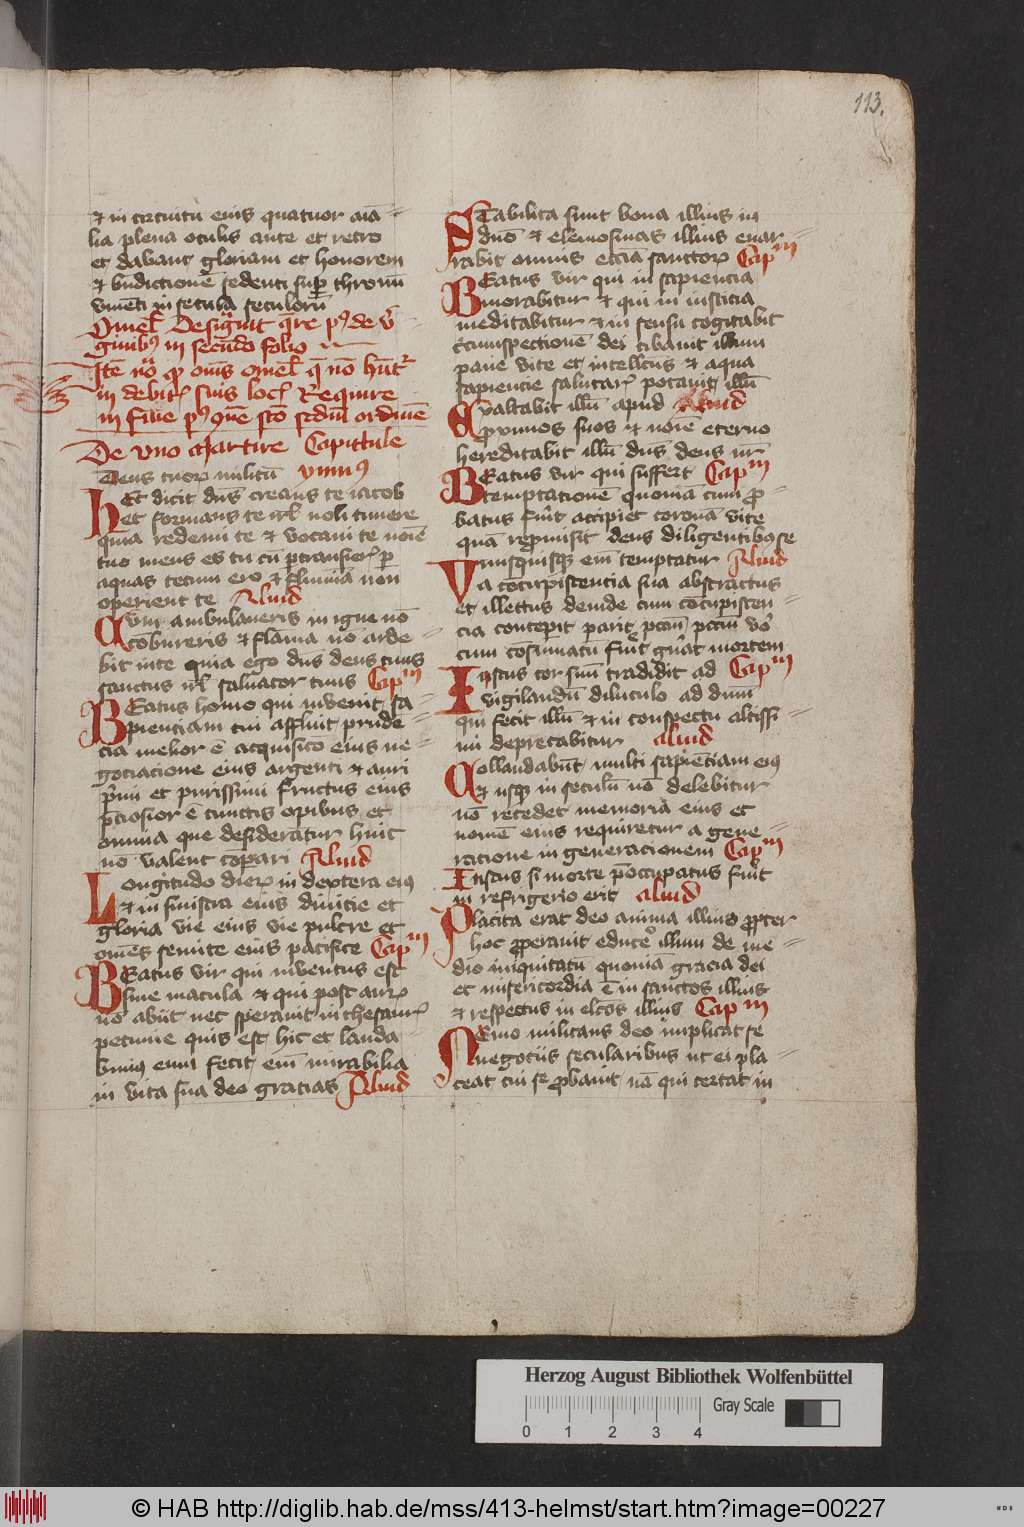 113.
⁊ in circuitu eius quatuor aīa⸗
lia plena oculis ante et retro
et dabant gloriam et honorem
⁊ bn̄dictionē sedenti suꝑ thronū
viuēti in secula seculorū
Omel̄ desiḡnit q̄re pꝰ de v̄
ginibꝰ in secūdo folio
Itē nō qͥ om̄s omel̄ q̄ nō hn̄tͬ
in debitꝭ suis locꝭ Require
in fine pꝰ q̄ sctō sc̄dm ordinē
De vno Martire Capittule
Deus tuorꝝ militū ymnꝰ
hEc dicit dn̄s creans te iacob
et formans te isrl̄ noli timere
quia redemi te ⁊ vocaui te noīe
tuo meus es tu cū ꝑtransierꝭ ꝑ
aquas tecum ero ⁊ flumina non
operient te Aliud
Cum ambulaueris in igne nō
cōbureris ⁊ flama nō arde⸗
bit in te quia ego dn̄s deus tuus
sanctus isrl̄ saluator tuus Capᵐ
BEatus homo qui inuenit sa⸗
pienciam cui affluit prudē⸗
cia melior ē acquisicō eius ne⸗
gociacione eius argenti ⁊ auri
pͥmi et purissimi fructus eius
p̄ciosior ē cunctis opibus et
omnia que desiderātur huic
nō valent cōpari Aliud
Longitudo dierꝝ in dextera eiꝰ
⁊ in sinistra eius diuicie et
gloria vie eius vie pulcre et
om̄es semite eius pacifice Capᵐ
BEatus vir qui inuentus est
sine macula ⁊ qui post aurꝝ
nō abijt nec sperauit in thesaurꝭ
pecunie quis est hic et lauda⸗
bimus eum fecit em̄ mirabilia
in vita sua deo gracias Aliud
STabilita sunt bona illius in
dn̄o ⁊ elemosinas illius enar⸗
rabit omnis ecc̄ia sanctorꝝ Capᵐ
BEatus vir qui in sapiencia
morabitur ⁊ qui in iusticia
meditabitur ⁊ in sensu cogitabit
cͥcumspectionē dei cibauit illum
pane vite et intellectus ⁊ aqua
sapiencie salutarꝭ potauit illū
Exaltabit illū apud Aliud
proximos suos ⁊ noīe eterno
hereditabit illū dn̄s deus nr̄
BEatus vir qui suffert Capᵐ
temptationē quoniā cum pro⸗
batus fuͥit accipiet coronā vite
quā repromisit deus diligentibꝰ se
Vnusquisqꝫ em̄ temptatur Aliud
a cōcupiscentia sua abstractus
et illectus deinde cum cōcupiscen⸗
cia conceperit parit pctm̄ pctm̄ vͦo
cum cōsumatū fuͥit gn̄at mortem
Iustus cor suū tradidit ad Capᵐ
vigilandū diluculo ad dnm̄
qui fecit illū ⁊ in conspectu altissi⸗
mi deprecabitur aliud
Collaudabūt multi sapiēciam eiꝰ
⁊ usqꝫ in seculū nō delebitur
nō recedet memoria eius et
nomē eius requiretur a gene⸗
racione in generacionem Capᵐ
Iustus si morte p̄occupatus fuͥit
in refrigerio erit aliud
Placita erat deo anima illius propter
hoc properauit educēͤ illum de me⸗
dio iniquitatū quoniā gracia dei
et misericordia ē in sanctos illius
⁊ respectus in elc̄os illius Capᵐ
Nemo militans deo implicat se
negociis secularibus ut ei pla⸗
ceat cui se probauit nā qui certat in
Herzog August Bibliothek Wolfenbüttel
Gray Scale
0 1 2 3 4
© HAB http://diglib.hab.de/mss/413-helmst/start.htm?image=00227
WDB